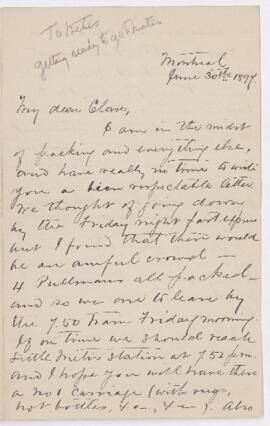 To Metis
getting ready to go to Metis
Montreal
June 30th 1897.
My dear Clare,
I am in the midst
of packing and everything else,
and have really no time to write
you a respectable letter
We thought of going down
by the Friday night fast express
but I found that there would
be an awful crowd —
4 Pullmans all packed —
and so we are to leave by
the 7.50 train Friday morning.
If on time we should reach
Little Metis Station at 7.52 p.m.
and I hope you will have there
a no 1 carriage (with rugs,
hot bottles, &c., &c.). Also